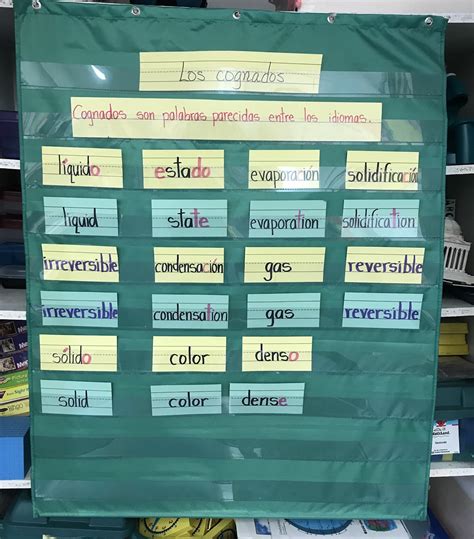 Los cognados
Cognados son palabras parecidas entre los idiomas.
líquido estado evaporación solidificación
liquid state evaporation solidification
irreversible condensación gas reversible
irreversible condensation gas reversible
sólido color denso
solid color dense